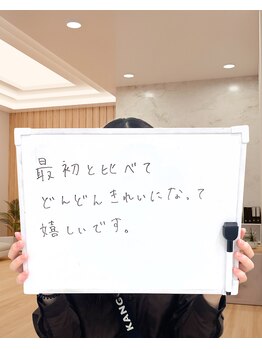 最初と比べて
どんどんきれいになって
嬉しいです。
KANG